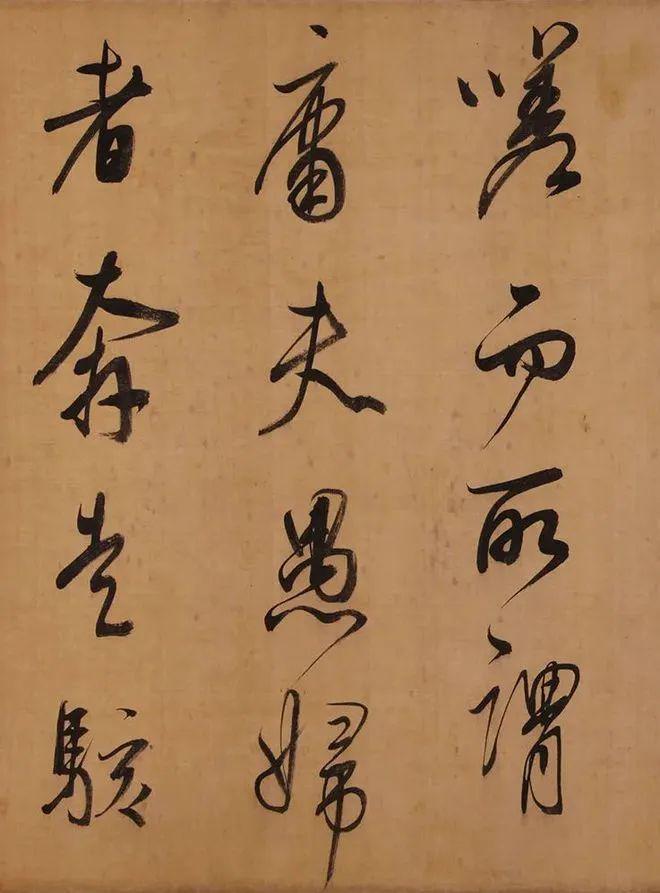 嗟而所謂
庸夫愚婦
者奔走駭